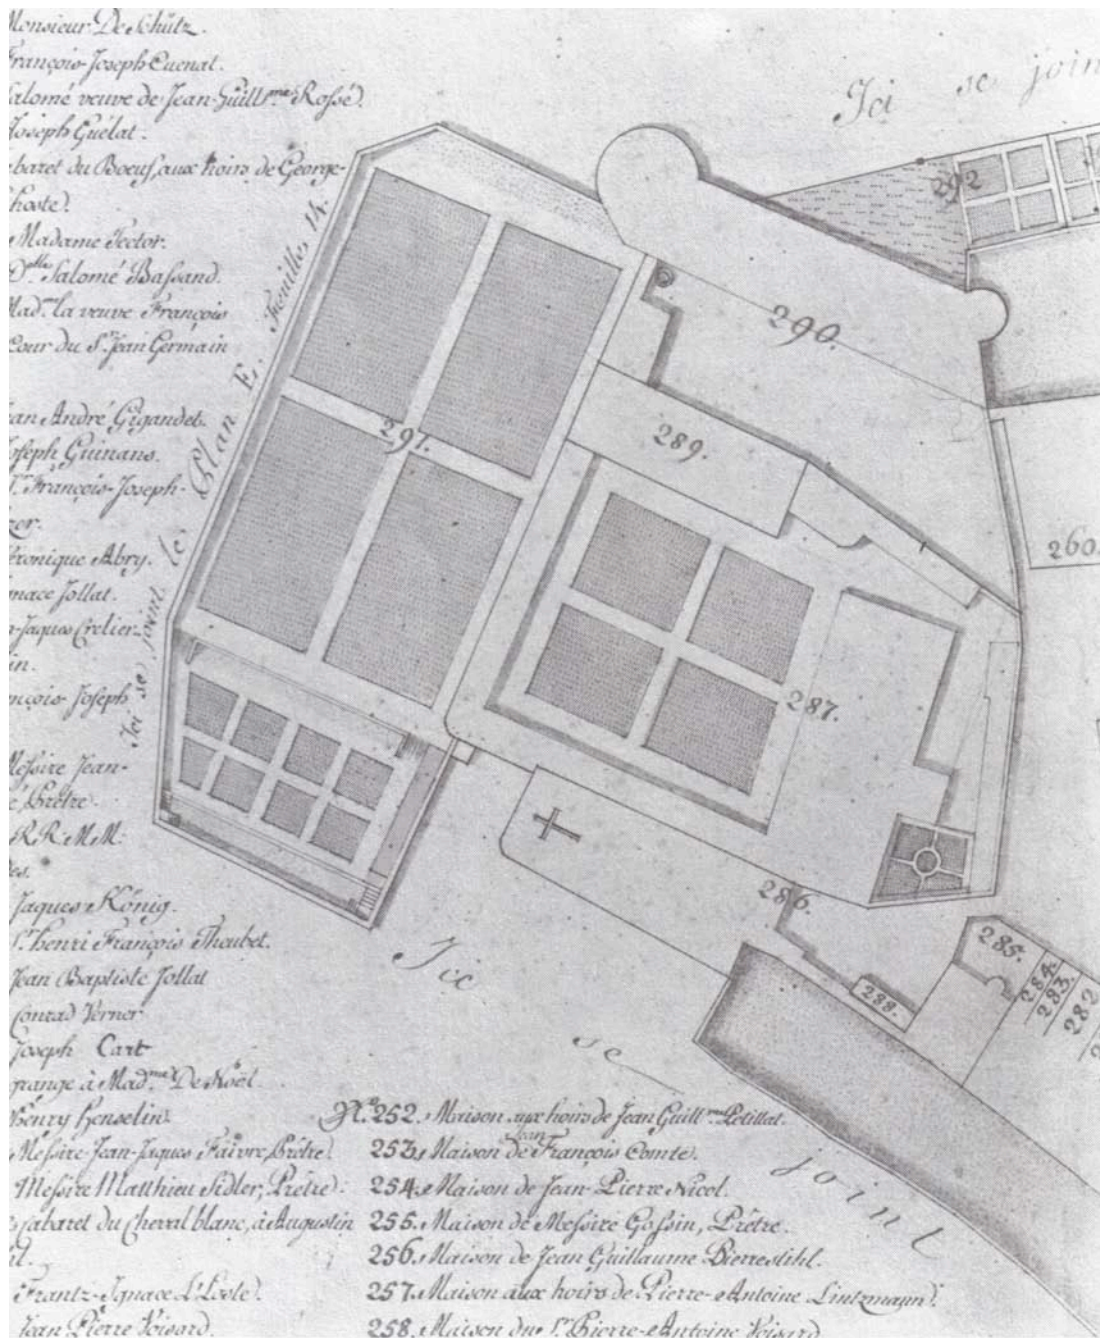 Monsieur De Schütz.
François Joseph Cuenat.
Salomé veuve de Jean Guillme Rossé.
Joseph Guélat.
baret du Boeuf, aux hoirs de George-
hoste.
Madame Tector.
Dlle Salomé Bassand.
Mad. la veuve François
Cour du Sr Jean Germain
an André Gigandet.
Joseph Guinans.
François-Joseph-
zer.
éronique Abry.
nace Jollat.
Jaques Crelier
in.
ançois Joseph
Messire Jean-
é, Prêtre.
RR. MM.
es.
Jaques König.
Sr henri François Thoubet.
Jean Baptiste Jollat
Conrad Verner
Joseph Cart
grange à Madme De Noël.
Henry henselin.
Messire Jean-Jaques Faivre, Prêtre.
Messire Matthieu Sidler, Prêtre.
Cabaret du Cheval blanc, à Augustin
Frantz-Ignace L'Hoste.
Jean Pierre Voisard.
Ici se joint le Plan E, Feuille 14.
Ici se join
292
290.
291.
289.
260.
287.
286.
285.
284.
283.
282
288.
Ici
se
joint
No. 252. Maison aux hoirs de Jean Guillme Petillat.
253. Maison de Jean François Comte.
254. Maison de Jean-Pierre Nicol.
255. Maison de Messire Gossin, Prêtre.
256. Maison de Jean Guillaume Bierrestihl.
257. Maison aux hoirs de Pierre-Antoine Lintzmann.
258. Maison du Sr Pierre-Antoine Voisard